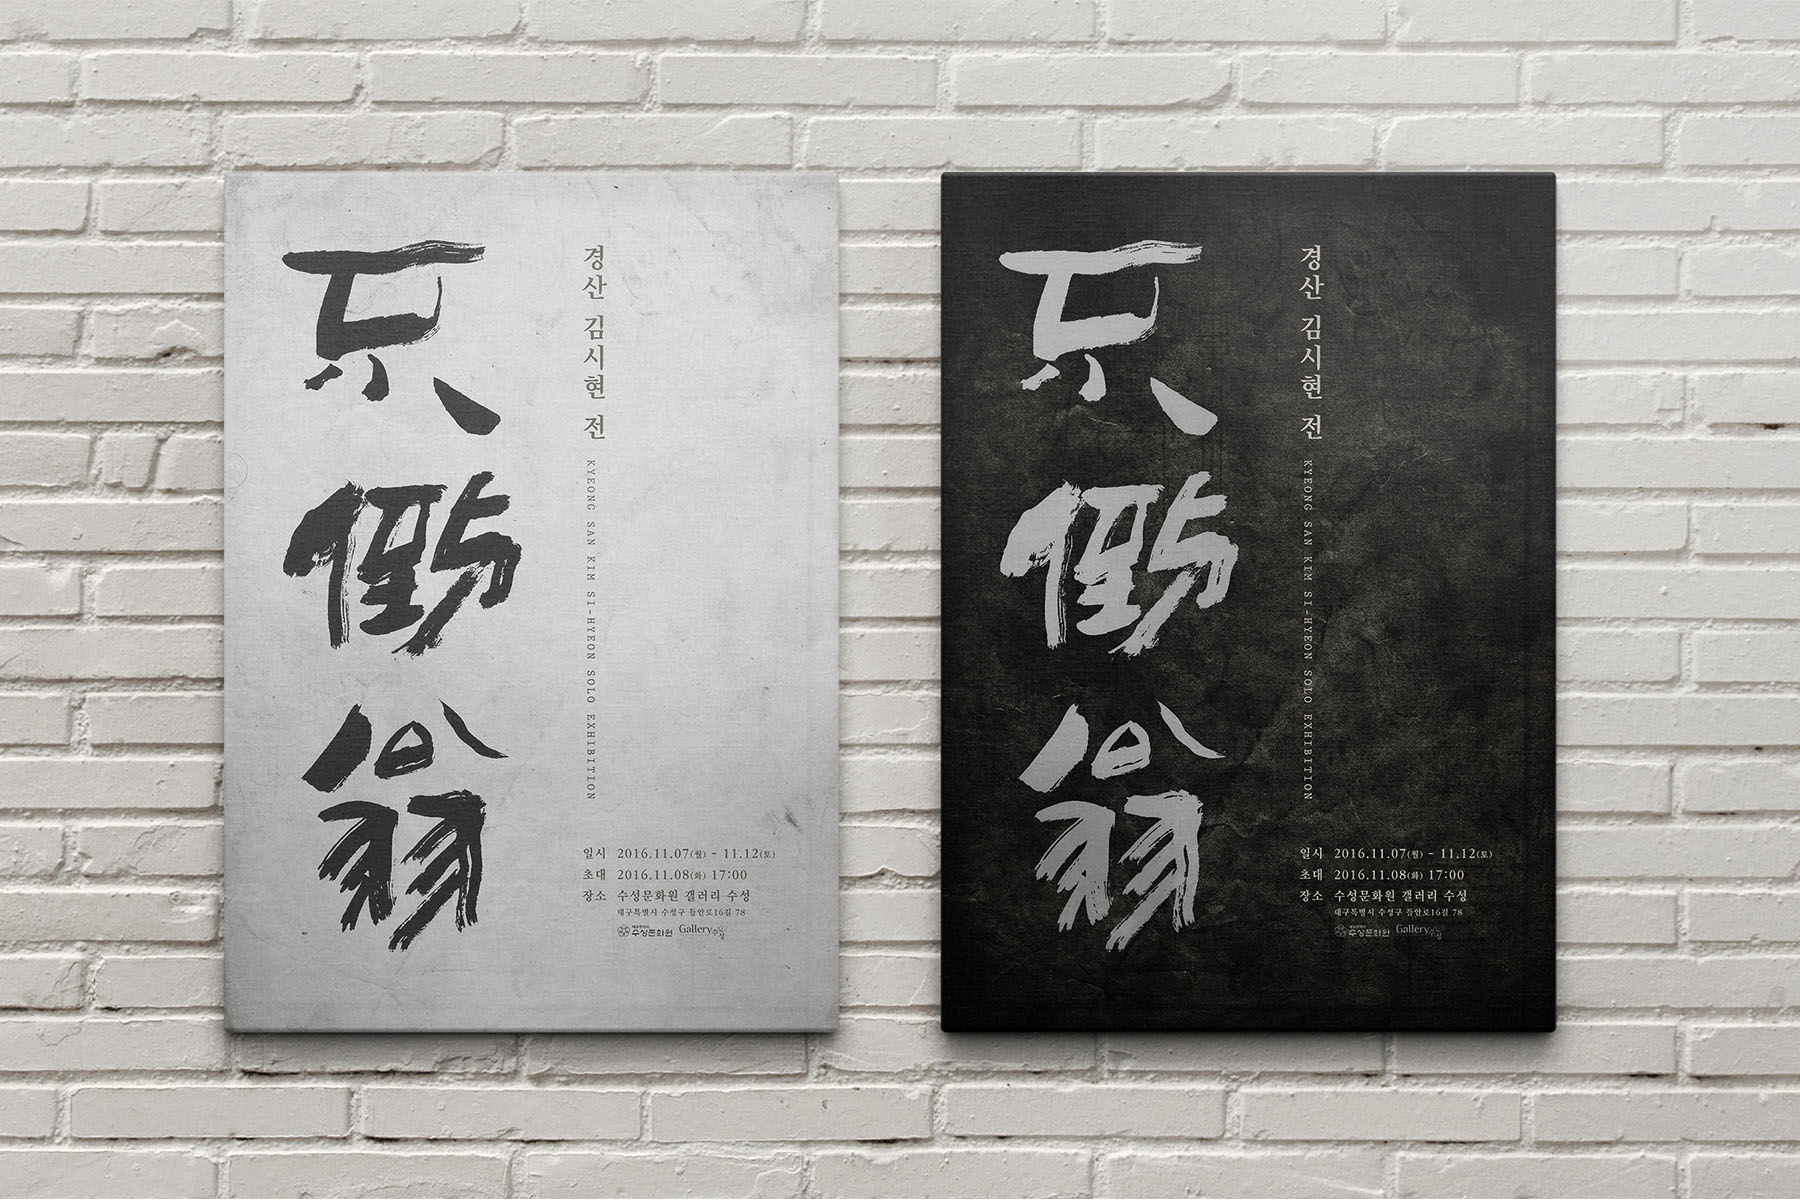 翁
경산 김시현 전
KYEONG SAN KIM SI-HYEON SOLO EXHIBITION
일시 2016.11.07(월) - 11.12(토)
초대 2016.11.08(화) 17:00
장소 수성문화원 갤러리 수성
대구특별시 수성구 들안로16길 78
수성문화원 Gallery수성
翁
경산 김시현 전
KYEONG SAN KIM SI-HYEON SOLO EXHIBITION
일시 2016.11.07(월) - 11.12(토)
초대 2016.11.08(화) 17:00
장소 수성문화원 갤러리 수성
대구특별시 수성구 들안로16길 78
수성문화원 Gallery수성